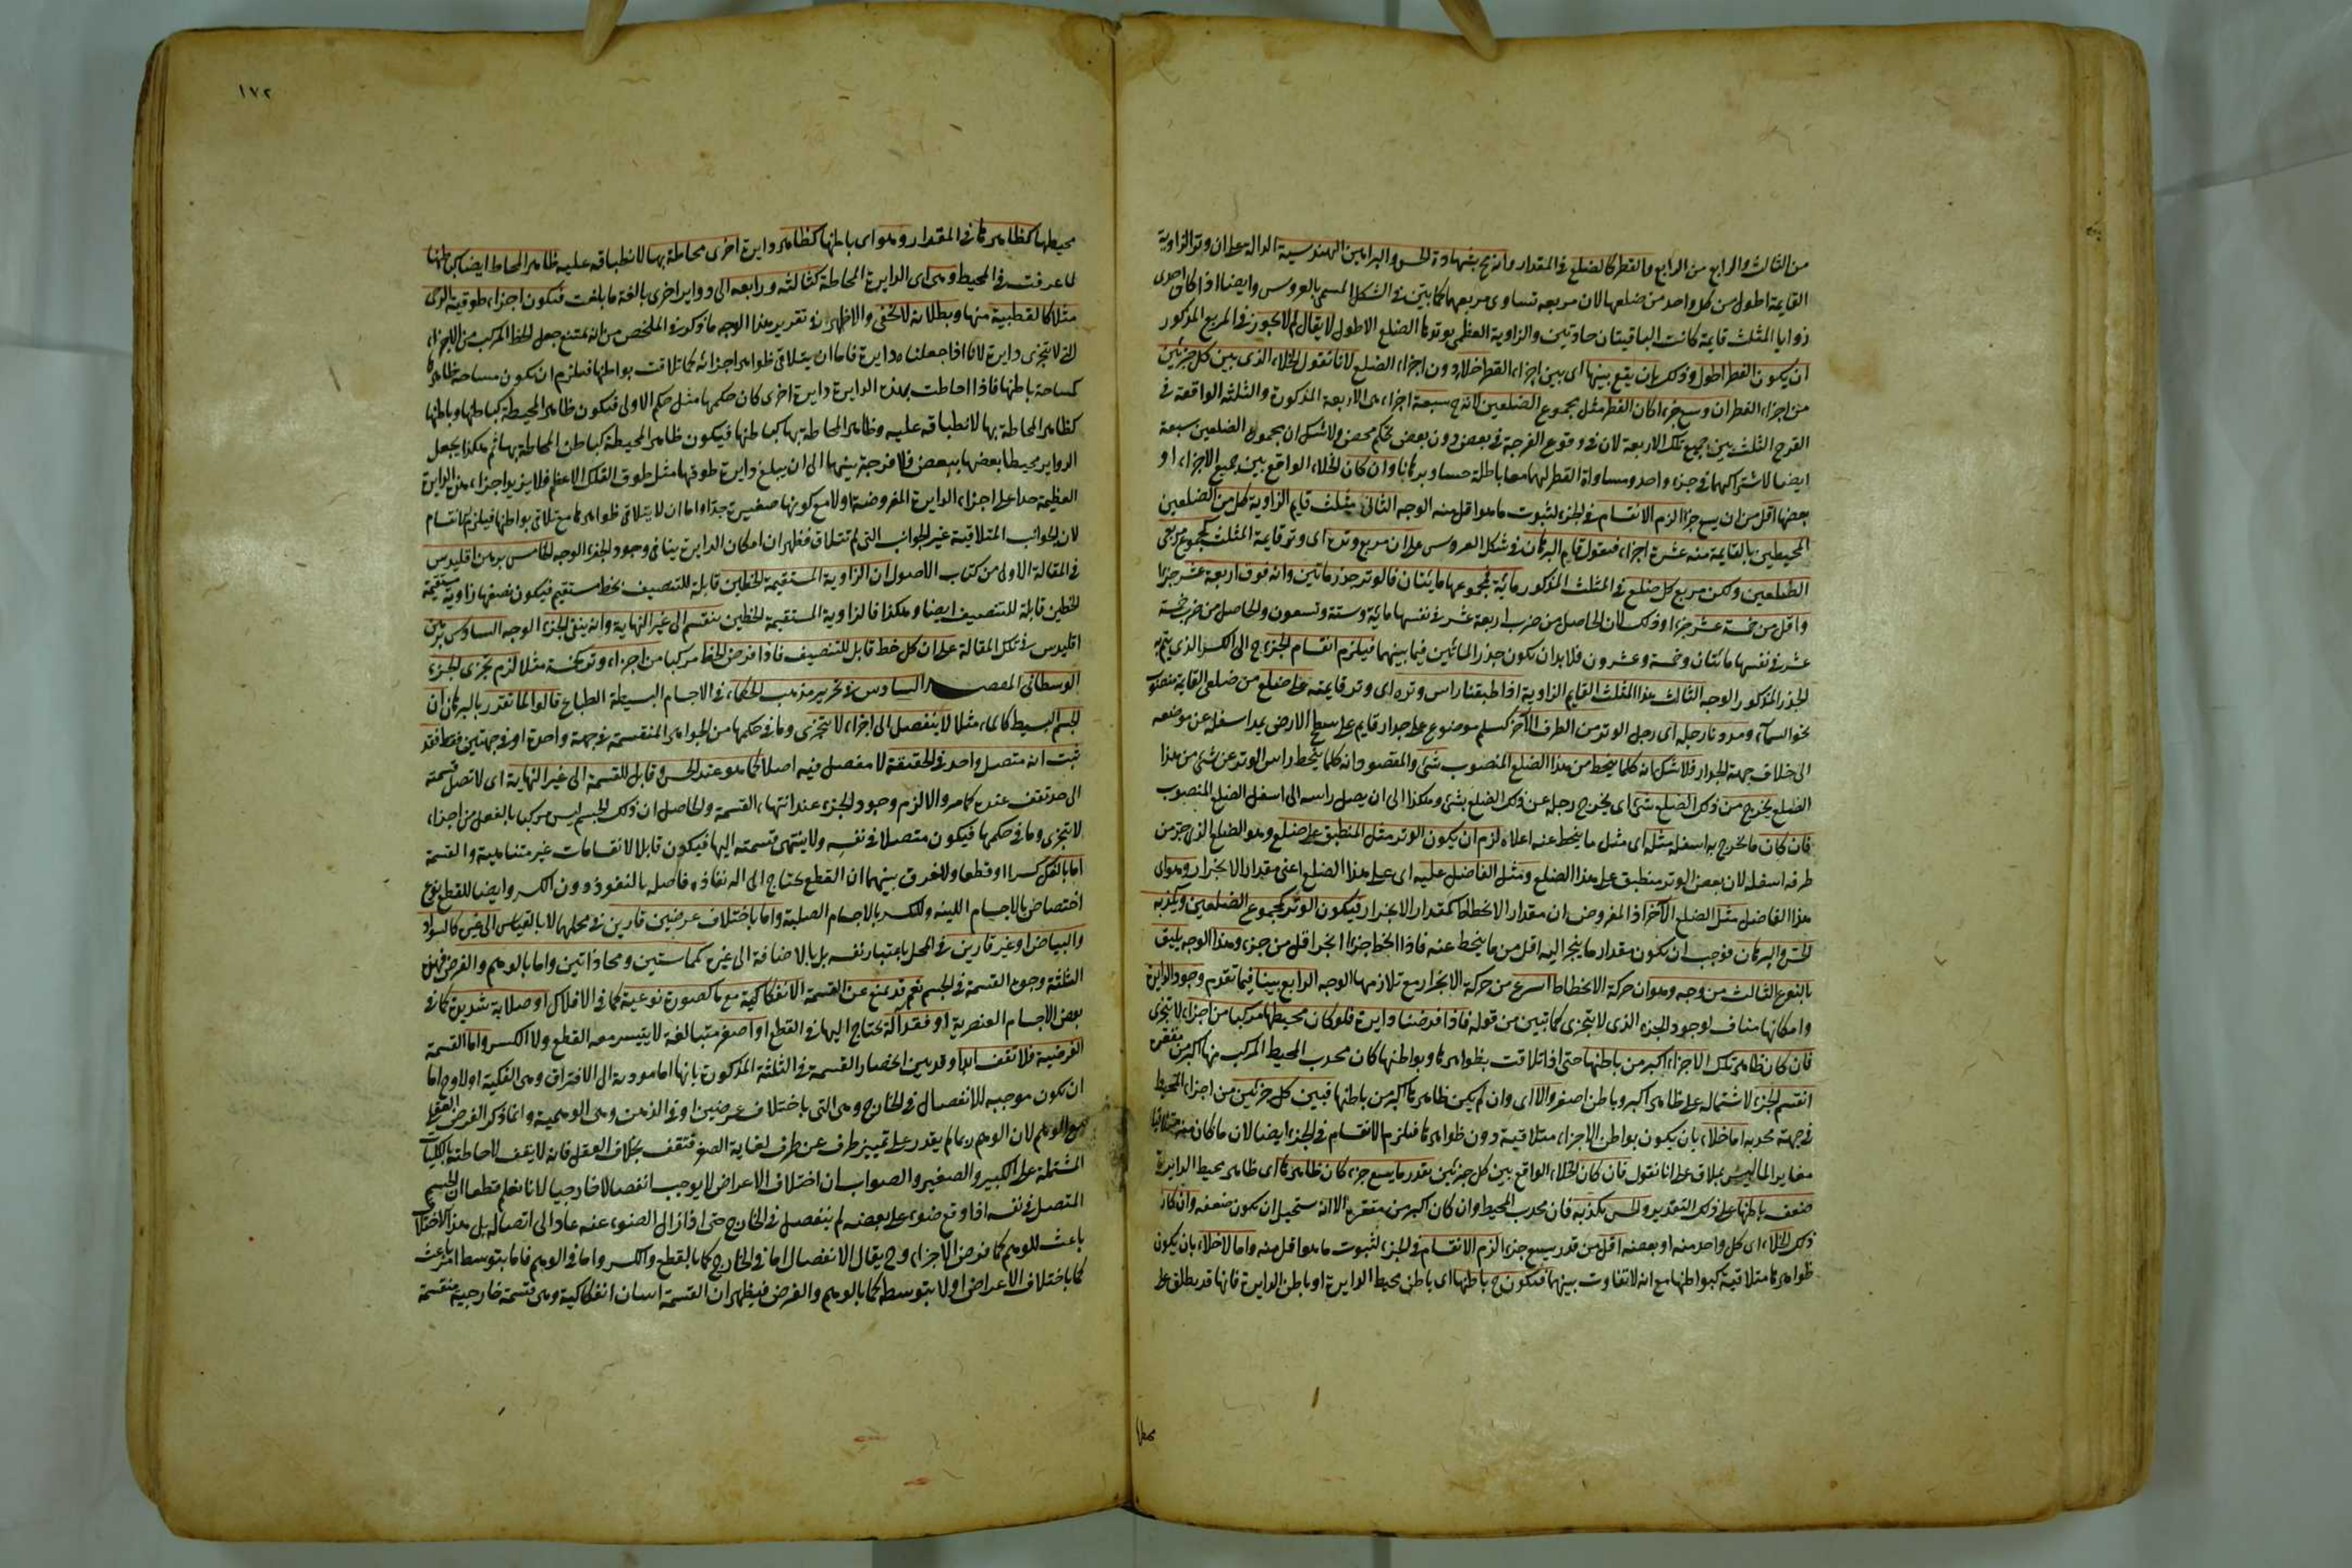 من الثالث والرابع من الرابع والقطر كالضلع في المقدار وأنه ح بشهادة الحس والبراهين الهندسية الدالة على ان وتر الزاوية
القايمة اطول من كل واحد من ضلعيها لان مربعه تساوى مربعهما كما بيّن في الشكل المسمى بالعروس وايضا اذا كان احدى
زوايا المثلث قايمة كانت الباقيتان حادتين والزاوية العظمى يوترها الضلع الاطول لا يقال لم لا يجوز في المربع المذكور
ان يكون القطر اطول وذلك بان يقع بينها اى بين اجزاء القطر خلاء دون اجزاء الضلع لانا نقول الخلاء الذى بين كل جزئين
من اجزاء القطر ان وسع جزءا كان القطر مثل مجموع الضلعين لانه ح سبعة اجزاء هى الاربعة المذكورة والثلثة الواقعة في
الفرج الثلث بين جميع تلك الاربعة لان في وقوع الفرجة في بعض دون بعض تحكم محض ولا شك ان مجموع الضلعين سبعة
ايضا لاشتراكهما في جزء واحد ومساواة القطر لهما معا باطلة حسا وبرهانا وان كان الخلاء الواقع بين جميع الاجزاء او
بعضها اقل من ان يسع جزءا لزم الانقسام في الجزء لثبوت ما هو اقل منه الوجه الثانى مثلث قايم الزاوية كل من الضلعين
المحيطين بالقايمة منه عشرة اجزاء فنقول قام البرهان في شكل العروس على ان مربع وتره اى وتر قايمة المثلث كمجموع مربعى
الضلعين ولكن مربع كل ضلع في المثلث المذكور مائة فمجموعهما مائتان فالوتر جذر ماتين وانه فوق اربعة عشر جزءا
واقل من خمسة عشر جزءا وذلك لان الحاصل من ضرب اربعة عشر في نفسها مائة وستة وتسعون والحاصل من ضرب خمسة
عشر في نفسها مائتان وخمسة وعشرون فلا بد ان يكون جذر المائتين فيما بينهما فيلزم انقسام الجزء ح الى الكسر الذى يتم به
الجذر المذكور الوجه الثالث هذا المثلث القايم الزاوية اذا طبقنا راس وتره اى وتر قايمته على ضلع من ضلعى القايمة منصوب
نحو السماء ومددنا رجله اى رجل الوتر من الطرف الآخر كسلم موضوع على جدار قايم على سطح الارض يمد اسفله عن موضعه
الى خلاف جهة الجدار فلا شك انه كلما ينحط من هذا الضلع المنصوب شئ والمقصود انه كلما ينحط راس الوتر عن شئ من هذا
الضلع يخرج من ذلك الضلع شئ اى يخرج رجله عن ذلك الضلع بشئ وهكذا الى ان يصل راسه الى اسفل الضلع المنصوب
فان كان ما يخرج به اسفله مثله اى مثل ما ينحط عنه اعلاه لزم ان يكون الوتر مثل المنطبق على ضلع وهو الضلع الذى جر من
طرفه اسفله لان بعض الوتر منطبق على هذا الضلع ومثل الفاضل عليه اى على هذا الضلع اعنى مقدار الانجرار وهو اى
هذا الفاضل مثل الضلع الآخر اذ المفروض ان مقدار الانحطاط كمقدار الانجرار فيكون الوتر كمجموع الضلعين ويكذبه
الحس والبرهان فوجب ان يكون مقدار ما ينجر اليه اقل من ما ينحط عنه فاذا انحط جزءا انجر اقل من جزء وهذا الوجه يليق
بالنوع الثالث من وجه وهو ان حركة الانحطاط اسرع من حركة الانجرار مع تلازمهما الوجه الرابع بينا فيما تقدم وجود الدايرة
وامكانها مناف لوجود الجزء الذى لا يتجزى كما تبين من قوله فاذا فرضنا دايرة فلو كان محيطها مركبا من اجزاء لا يتجزى
فان كان ظاهر تلك الاجزاء اكبر من باطنها حتى اذا تلاقت بظواهرها وبواطنها كان محدب المحيط المركب منها اكبر من مقعره
انقسم الجزء لاشتماله على ظاهر اكبر وباطن اصغر والا اى وان لم يكن ظاهرها اكبر من باطنها فبين كل جزئين من اجزاء المحيط
في جهة محدبه اما خلاء بان يكون بواطن الاجزاء متلاقية دون ظواهرها فيلزم الانقسام في الجزء ايضا لان ما كان منه متلاقيا
مغاير لما ليس بملاق على انا نقول فان كان الخلاء الواقع بين كل جزئين بقدر ما يسع جزء كان ظاهرها اى ظاهر محيط الدايرة
ضعف باطنها على ذلك التقدير والحس يكذبه فان محدب المحيط وان كان اكبر من مقعره الا انه يستحيل ان يكون ضعفه وان كان
ذلك الخلاء اى كل واحد منه او بعضه اقل من قدر يسع جزء لزم الانقسام في الجزء لثبوت ما هو اقل منه واما لا خلاء بان يكون
ظواهرها متلاقية كبواطنها مع انه لا تفاوت بينهما فيكون ح باطنها اى باطن محيط الدايرة او باطن الدايرة فانها قد يطلق على
محيطها
١٧٢
محيطها كظاهرها في المقدار وهو اى باطنها كظاهر دايرة اخرى محاطة بها لانطباقه عليه ظاهر المحاط ايضا كباطنها
لما عرفت في المحيط وهى اى الدايرة المحاطة كثالثة ورابعه الى دواير اخرى بالغة ما بلغت فيكون اجزاء طوقية الرحى
مثلا كالقطبية منها وبطلانه لا يخفى والاظهر في تقرير هذا الوجه ما ذكره في الملخص من انه يمتنع جعل الخط المركب من الاجزاء
التى لا يتجزى دايرة لانا اذا جعلناه دايرة فاما ان يتلاقى ظواهر اجزائه كما تلاقت بواطنها فيلزم ان يكون مساحة ظاهرها
كمساحة باطنها فاذا احاطت بهذه الدايرة دايرة اخرى كان حكمها مثل حكم الاولى فيكون ظاهر المحيطة كباطنها وباطنها
كظاهر المحاطة بها لانطباقه عليه وظاهر المحاطة بها كباطنها فيكون ظاهر المحيطة كباطن المحاطة بها ثم هكذا يجعل
الدواير محيطا بعضها ببعض فلا فرجة بينها الى ان يبلغ دايرة طوقها مثل طوق الفلك الاعظم فلا يزيد اجزاء هذه الدايرة
العظيمة جدا على اجزاء الدايرة المفروضة اولا مع كونها صغيرة جدا واما ان لا يتلاقى ظواهرها مع تلاقى بواطنها فيلزم الانقسام
لان الجوانب المتلاقية غير الجوانب التى لم تتلاق فظهر ان امكان الدايرة ينافى وجود الجزء الوجه الخامس برهن اقليدس
في المقالة الاولى من كتاب الاصول ان الزاوية المستقيمة الخطين قابلة للتنصيف بخط مستقيم فيكون نصفها زاوية مستقيمة
الخطين قابلة للتنصيف ايضا وهكذا فالزاوية المستقيمة الخطين ينقسم الى غير النهاية وانه ينفى الجزء الوجه السادس برهن
اقليدس في تلك المقالة على ان كل خط قابل للتنصيف فاذا فرض الخط مركبا من اجزاء وتر كخمسة مثلا لزم تجزى الجزء
الوسطانى المقصد السادس في تحرير مذهب الحكماء في الاجسام البسيطة الطباع قالوا لما تقرر بالبرهان ان
الجسم البسيط كالماء مثلا لا ينفصل الى اجزاء لا يتجزى وما في حكمها من الجواهر المنقسمة في جهة واحدة او في جهتين فقط فقد
ثبت انه متصل واحد في الحقيقة لا مفصل فيه اصلا كما هو عند الحس وقابل للقسمة الى غير النهاية اى لا تصل قسمته
الى حد تقف عنده كما مر والا لزم وجود الجزء عند انتهاء القسمة والحاصل ان ذلك الجسم ليس مركبا بالفعل من اجزاء
لا يتجزى وما في حكمها فيكون متصلا في نفسه ولا ينتهى قسمته اليها فيكون قابلا لانقسامات غير متناهية والقسمة
اما بالفك كسرا او قطعا والفرق بينهما ان القطع يحتاج الى اله نفاذه فاصله بالنفوذ دون الكسر وايضا للقطع نوع
اختصاص بالاجسام اللينه وللكسر بالاجسام الصلبة واما باختلاف عرضين قارين في محلهما لا بالقياس الى غيره كالسواد
والبياض او غير قارين في المحل باعتبار نفسه بل بالاضافة الى غيره كمماستين ومحاذاتين واما بالوهم والفرض فهذه
الثلثة وجوه القسمة في الجسم نعم قد يمنع عن القسمة الانفكاكية مع ما كصورة نوعية كما في الافلاك او صلابة شديدة كما في
بعض الاجسام العنصرية او فقد آلة يحتاج اليها في القطع او اصغر متبالغة لا يتيسر معه القطع ولا الكسر واما القسمة
الفرضية فلا تقف ابدا وقد بين انحصار القسمة في الثلثة المذكورة بانها اما مودية الى الافتراق وهى الفكية او لا وح اما
ان يكون موجبه للانفصال في الخارج وهى التى باختلاف عرضين او في الذهن وهى الوهمية وانما ذكر الفرض العقلى
مع الوهم لان الوهم ربما لم يقدر على تمييز طرف عن طرف لغاية الصغر فتقف بخلاف العقل فانه لا يقف لاحاطته بالكليات
المشتملة على الكبير والصغير والصواب ان اختلاف الاعراض لا يوجب انفصالا خارجيا لانا نعلم قطعا ان الجسم
المتصل في نفسه اذا وقع ضوء على بعضه لم ينفصل في الخارج حتى اذا زال الضوء عنه عاد الى اتصاله بل هذا الاختلاف
باعث للوهم كما فرض الاجزاء وح يقال الانفصال اما في الخارج كما بالقطع والكسر واما في الوهم فاما بتوسط امر باعث
كما باختلاف الاعراض او لا بتوسطه كما بالوهم والفرض فيظهر ان القسمة اسان انفكاكية وهى قسمة خارجية منقسمة